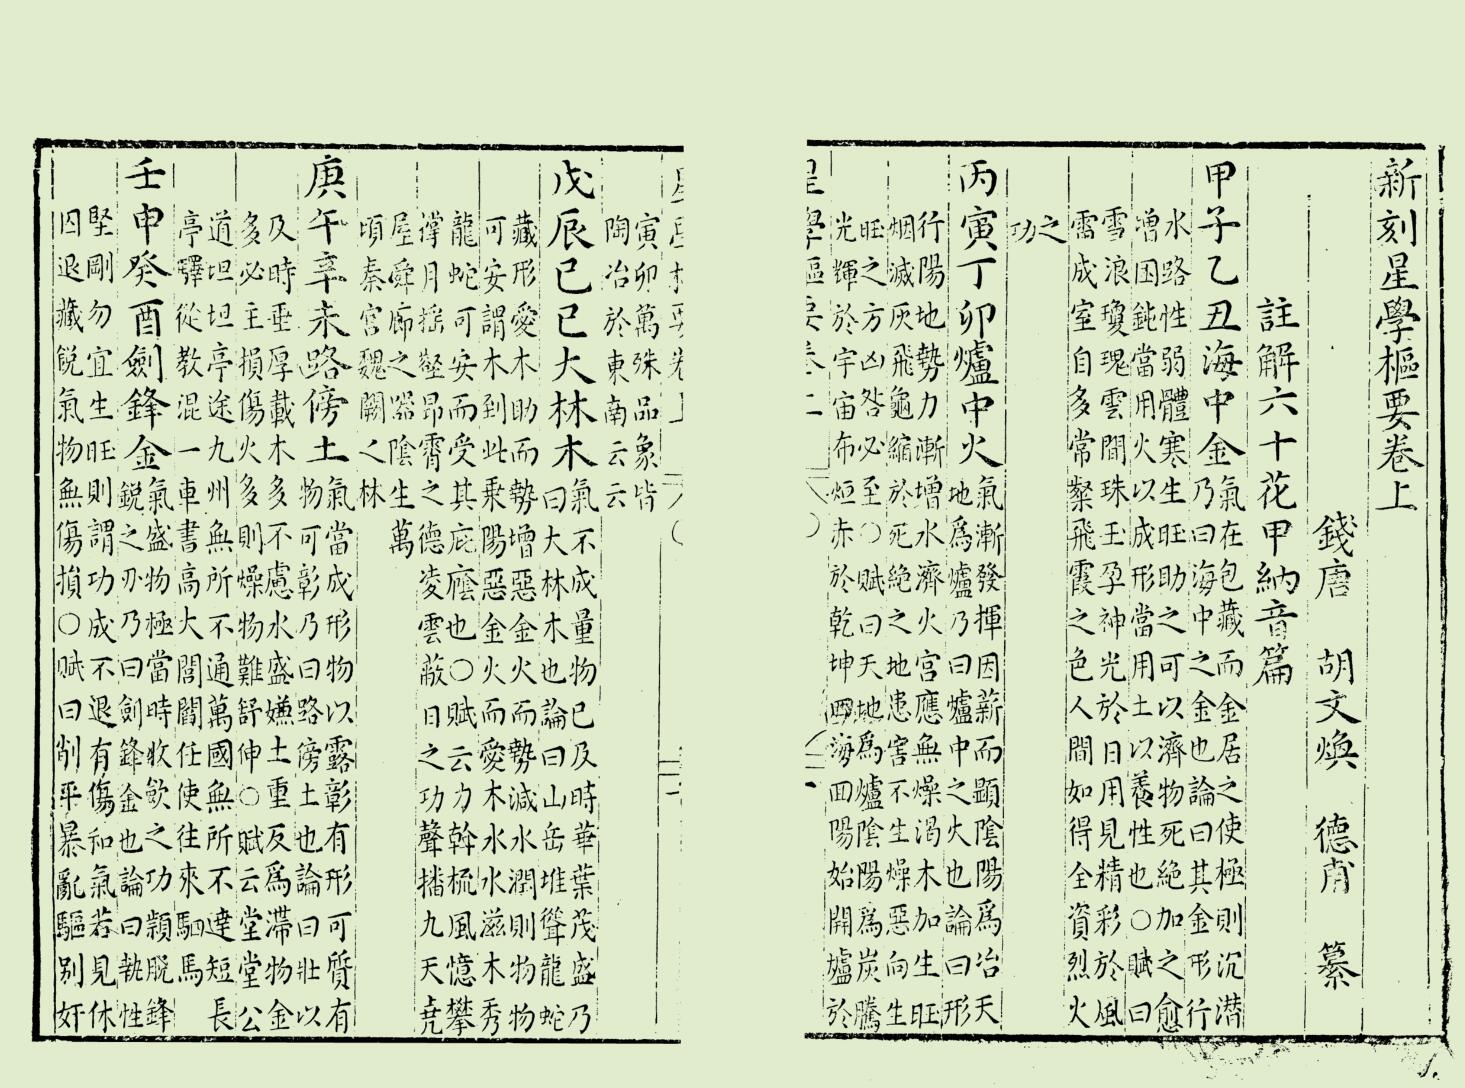 新刻星學樞要卷上
錢唐 胡文煥 德甫 纂
註解六十花甲納音篇
甲子乙丑海中金
氣在包藏而金居之使極則沉潛
乃曰海中之金也論曰其金形行
水路性弱體寒生旺助之可以濟物死絕加之愈
增困鈍當用火以成形當用土以養性也○賦曰
雪浪瓊瑰雲間珠玉孕神光於日用見精彩於風
需成室自多常粲飛霞之色人間如得全資烈火
之
功
丙寅丁卯爐中火
氣漸發揮因薪而顯陰陽爲冶天
地爲爐乃曰爐中之火也論曰形
行陽地勢力漸增水濟火宮應無燥渴木加生旺
烟滅灰飛龜縮於死絕之地患害不生燥惡向生
旺之方凶咎必至○賦曰天地爲爐陰陽爲炭騰
光輝於宇宙布烜赤於乾坤四海回陽始開爐於
寅卯萬殊品象皆
陶冶於東南云云
戊辰己巳大林木
氣不成量物已及時華葉茂盛乃
曰大林木也論曰山岳堆聳龍蛇
藏形愛木助而勢增惡金火而勢減水潤則物物
可安謂木到此乘陽惡金火而愛木水水滋木秀
龍蛇可安而受其庇廕也○賦云力幹梳風憶攀
撑月搖壑昂霄之德凌雲蔽日之功聲播九天堯
屋舜廊之器陰生萬
頃秦宮魏闕之林
庚午辛未路傍土
氣當成形物以露彰有形可質有
物可彰乃曰路傍土也論曰壯以
及時垂厚載木多不慮水盛嫌土重反爲滯物金
多必主損傷火多則燥物難舒伸○賦云堂堂公
道坦坦亭途九州無所不通萬國無所不達短長
亭驛從教混一車書高大閭閻任使往來駟馬
壬申癸酉劍鋒金
氣盛物極當時收歛之功穎脫鋒
銳之刃乃曰劍鋒金也論曰執性
堅剛勿宜生旺則謂功成不退有傷和氣若見休
囚退藏銳氣物無傷損○賦曰削平暴亂驅别奸